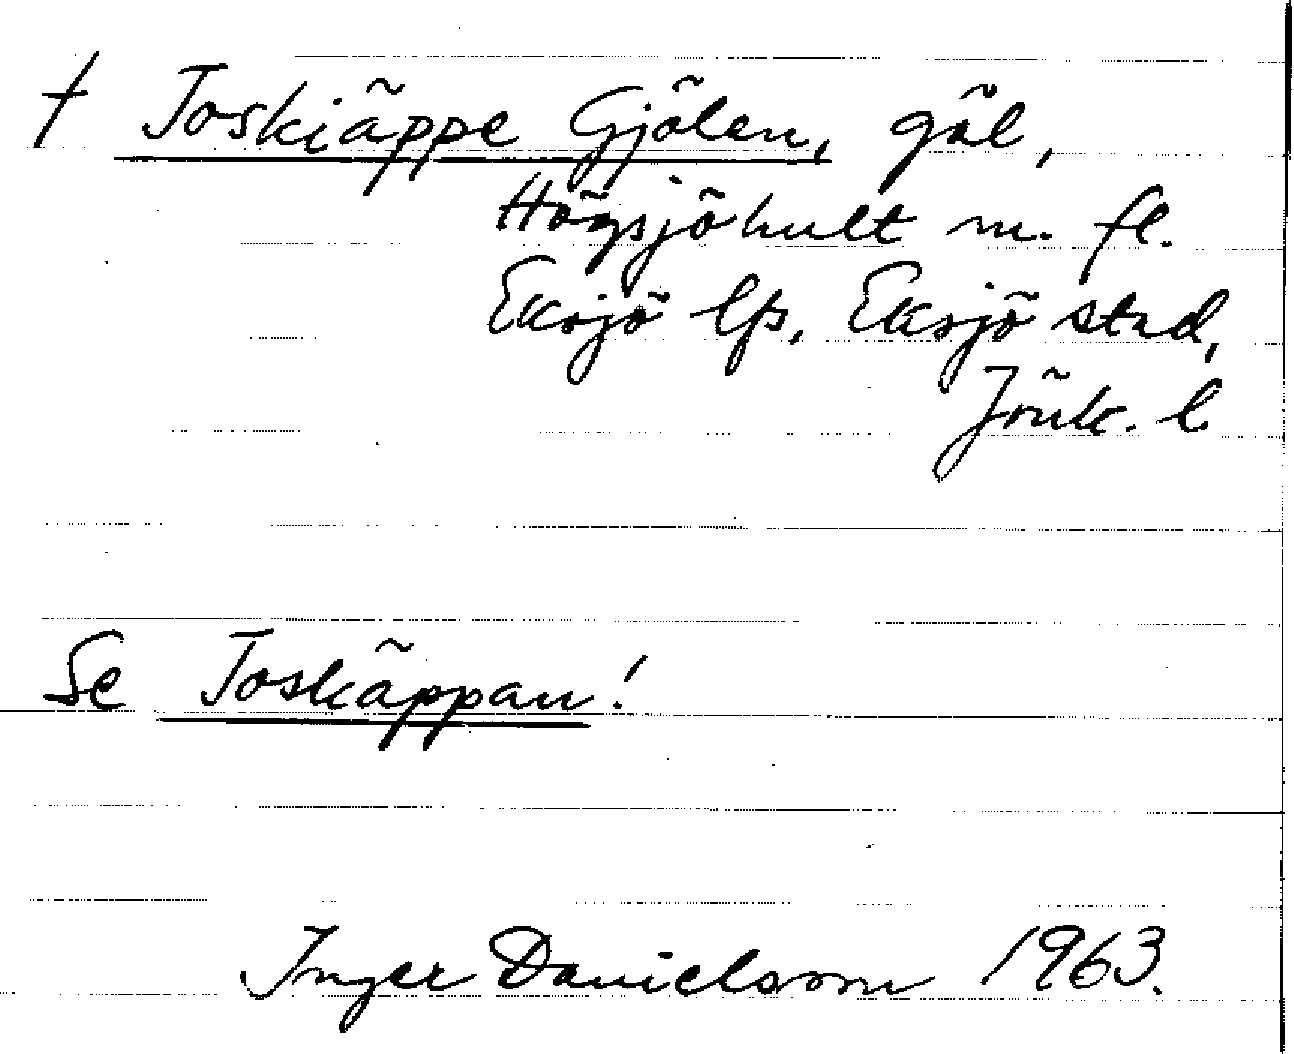 † Joskiäppe Gjölen, göl,
Högsjöhult m. fl.
Eksjö lfs, Eksjö stad,
Jönk. l
Se Joskäppan!
Inger Danielsson 1963.